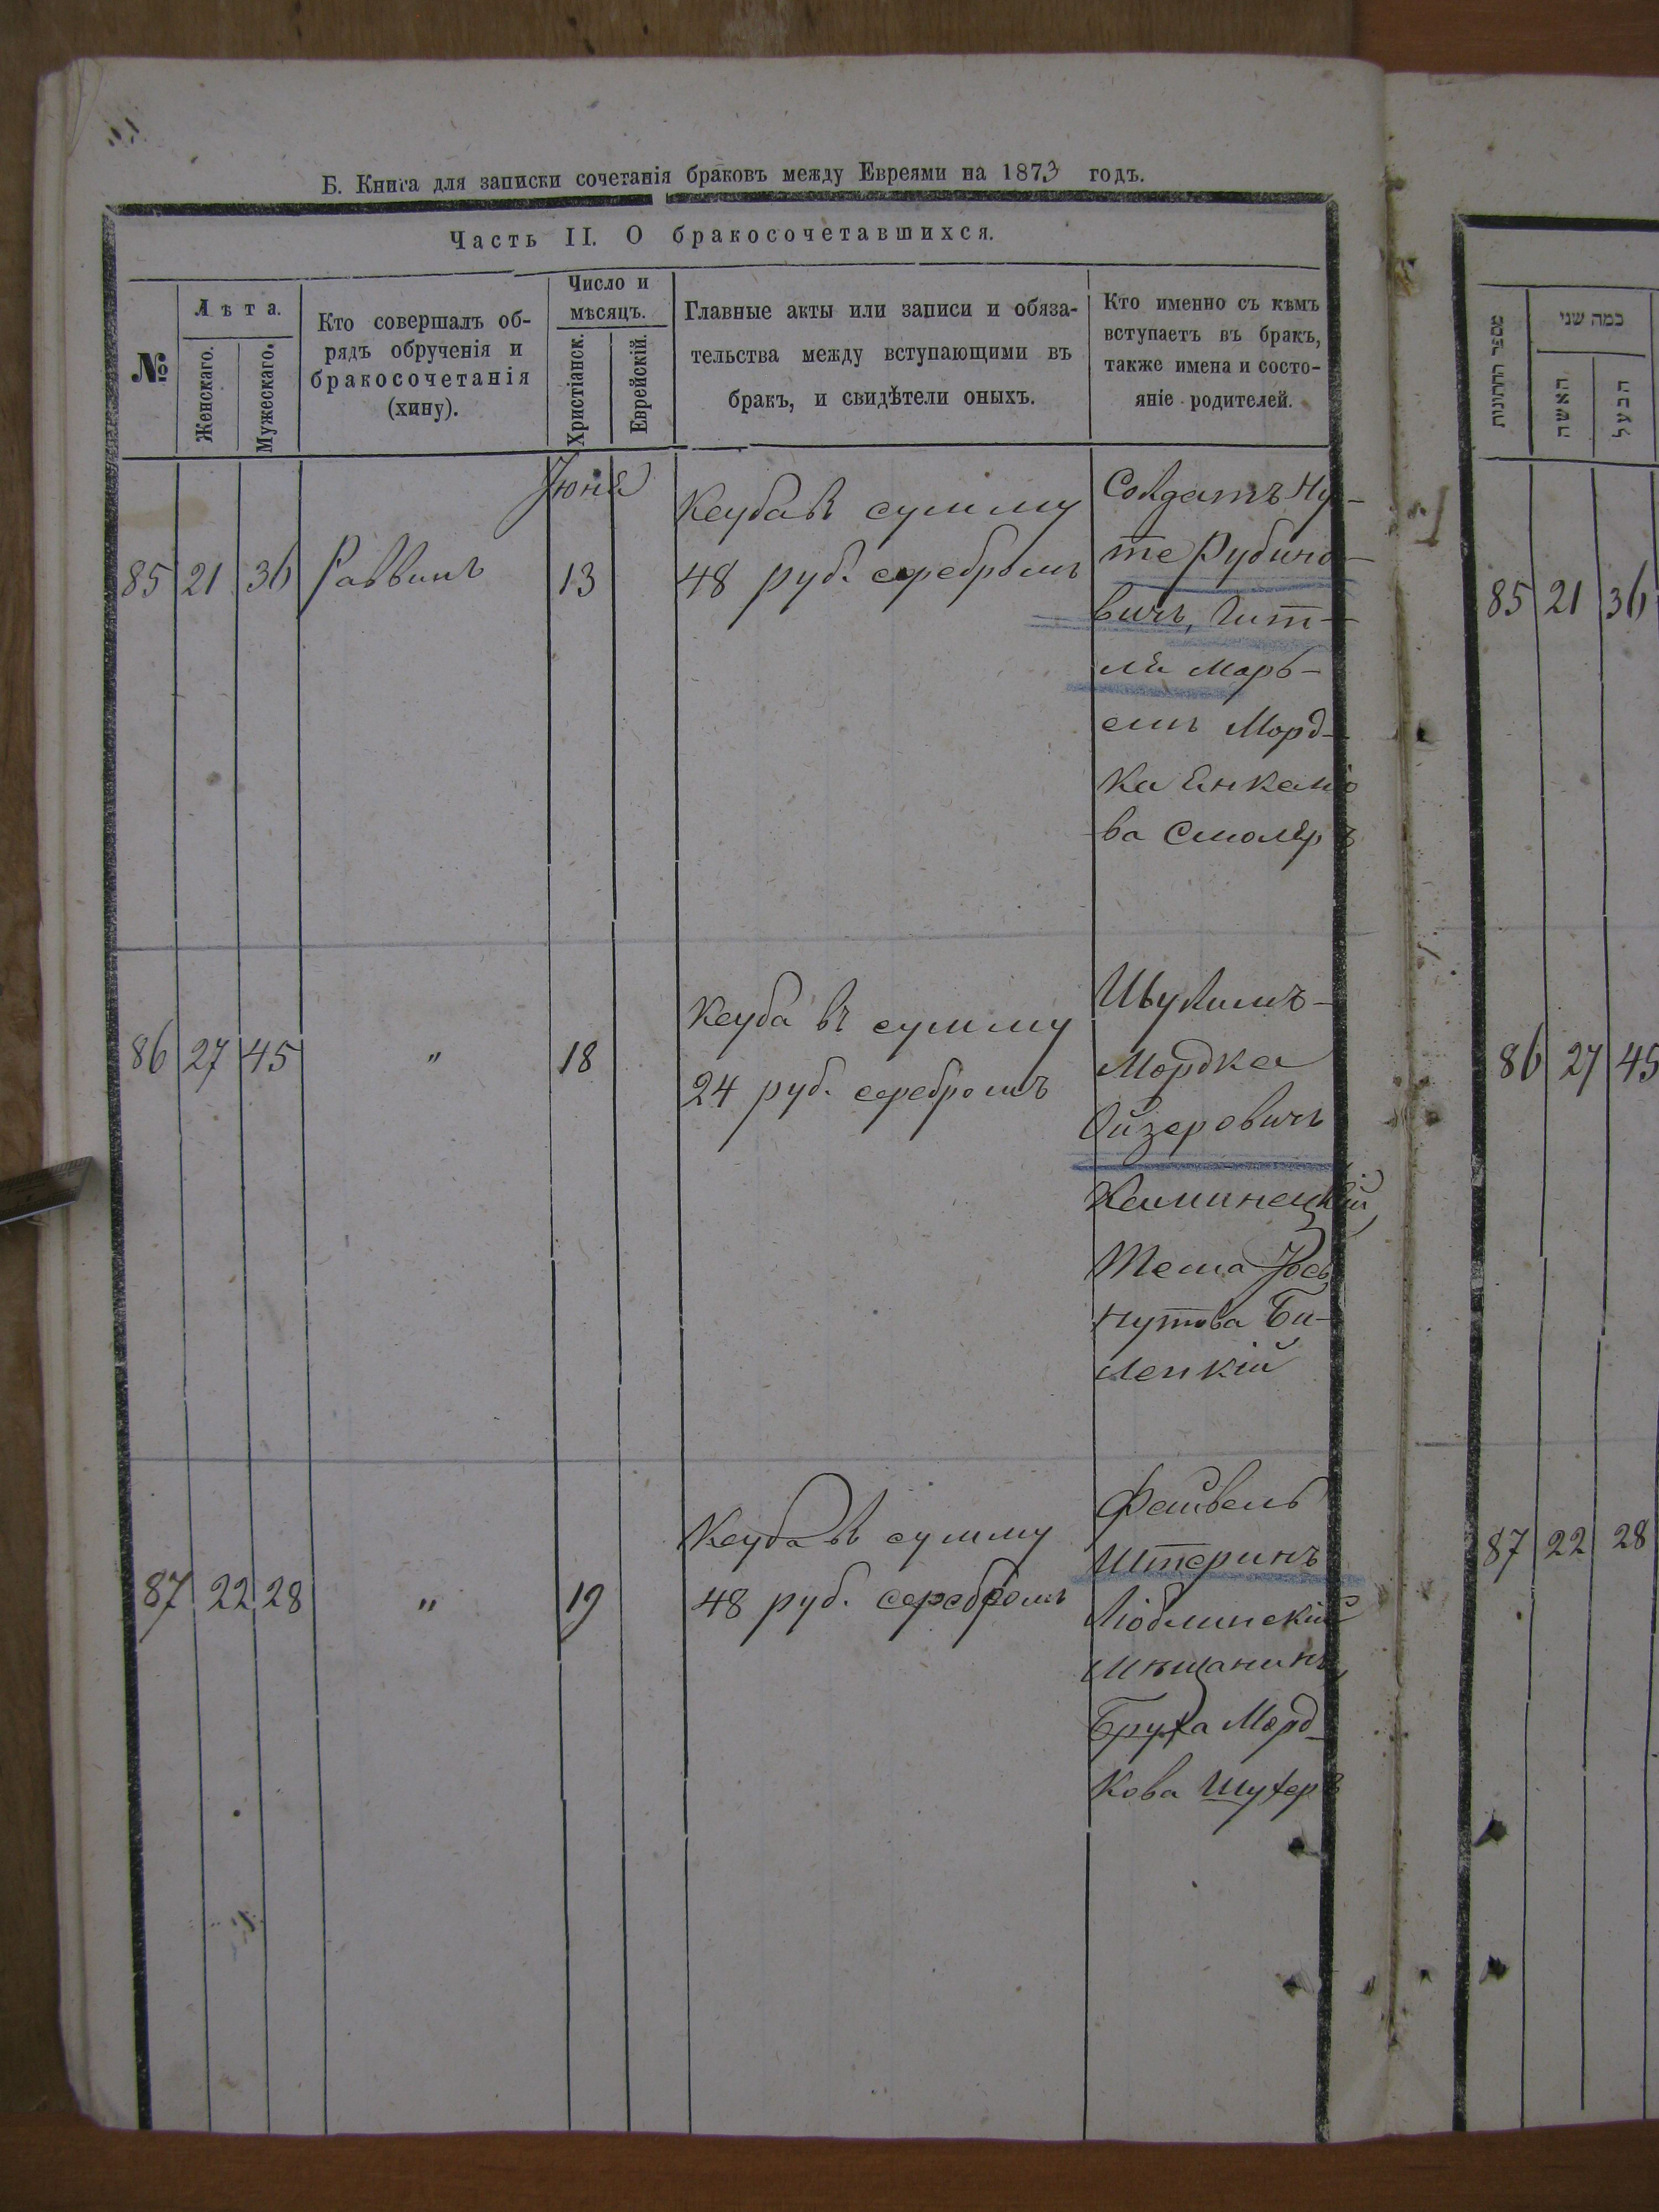 Б. Книга для записки сочетанія браковъ между Евреями на 1873 годъ.
Часть II. О бракосочетавшихся.
№
Лѣта.
Женскаго.
Мужескаго.
Кто совершалъ об-
рядъ обрученія и
бракосочетанія
(хину).
Число и
мѣсяцъ.
Христіанск.
Еврейскій.
Главные акты или записи и обяза-
тельства между вступающими въ
бракъ, и свидѣтели оныхъ.
Кто именно съ кѣмъ
вступаетъ въ бракъ,
также имена и состо-
яніе родителей.
Іюня
85 21 36 Раввинъ 13
Кеуба въ сумму
48 руб. серебромъ
Солдатъ Ну-
те Рубино-
вичъ, Гит-
ля Марь-
емъ Морд-
ка Енкелю
ва Смоляръ
86 27 45 " 18
Кеуба въ сумму
24 руб. серебромъ
Шулимъ-
Мордка
Ойзеровичъ
Каминецкій,
Тема Іось
Нутова Би-
лецкій
87 22 28 " 19
Кеуба въ сумму
48 руб. серебромъ
Файвель
Штеринъ
Люблинскій
мѣщанинъ,
Бруха Морд-
кова Шухеръ
מספר החתונות
כמה שני
האשה
הבעל
85 21 36
86 27 45
87 22 28